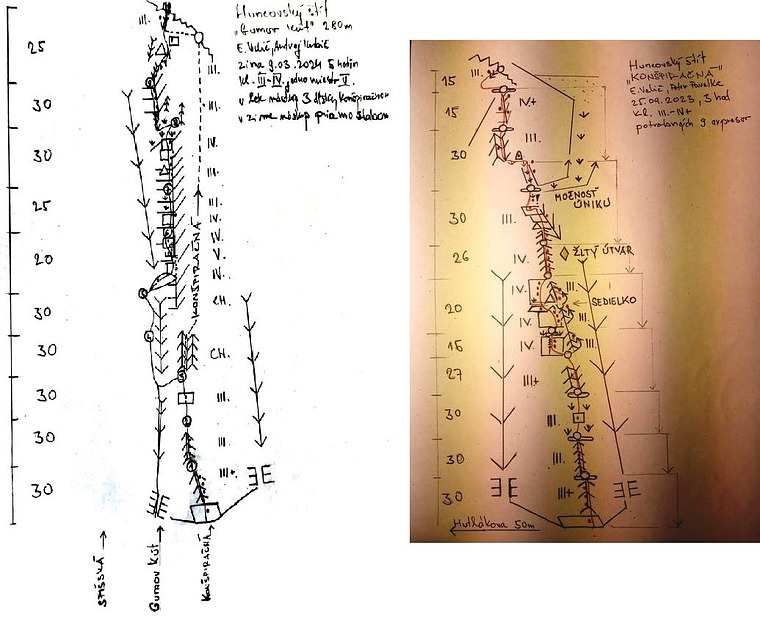 Huncovský štít
"Gumov kút" 280m
E. Velič, Andrej Kubič
zima 9.03.2024 5 hodin
kl. III-IV, jedno miesto V.
v zime nástup priamo žlabom
III.
25
30
30
25
20
30
30
30
30
30
III.
III.
IV.
III.
III.
IV.
IV.
V.
IV.
CH.
CH.
III.
III
III+
KONŠPIRAČNÁ
SPIŠSKÁ
Gumov kút
KONŠPIRAČNÁ
Huncovský štít
"KONŠPIRAČNÁ"
E. Velič, Petr Pavelka
25.09.2023, 3 hod
kl. III.-IV+
potrebných 9 expresov
15
15
30
30
26
20
16
27
30
30
30
III.
IV+
III.
MOŽNOSŤ
ÚNIKU
III.
IV.
ŽLTÝ ÚTVAR
IV.
III.
SEDIELKO
IV.
III.
IV.
III.
III+
III.
III.
III+
Hutlákova 50m